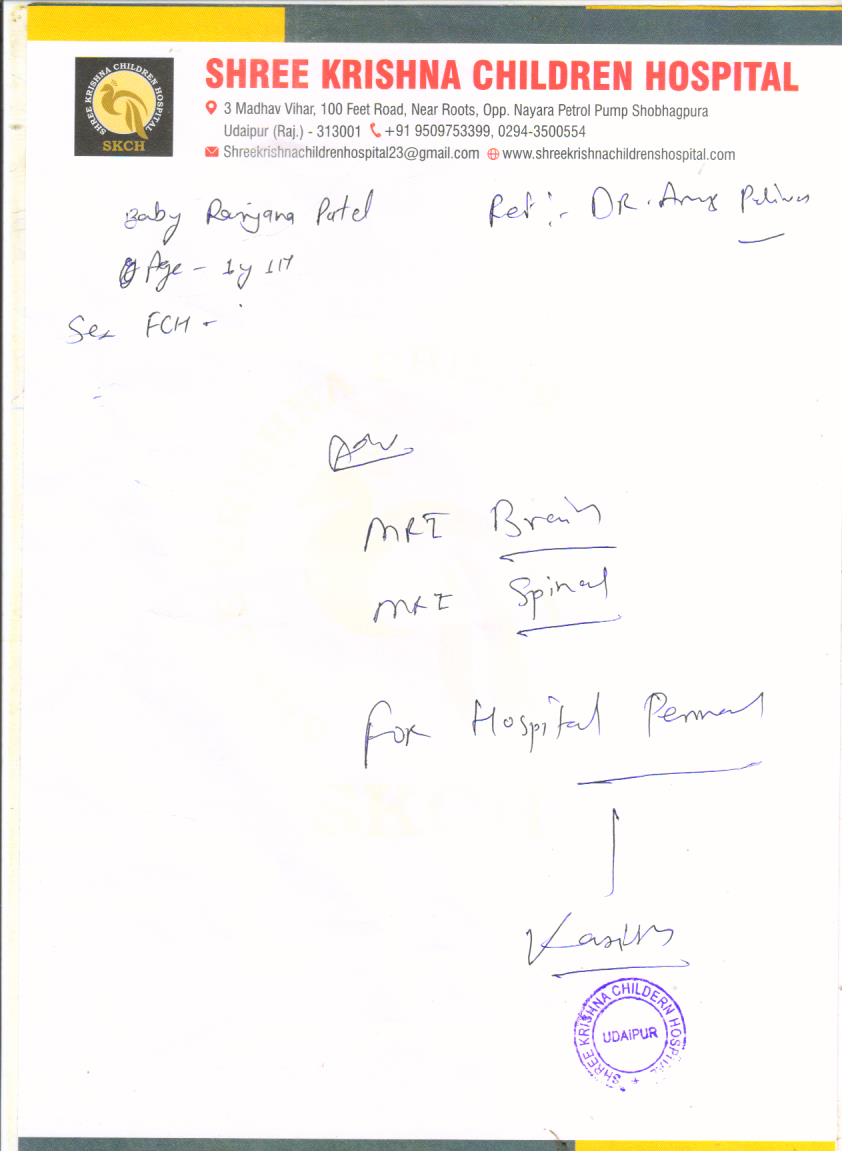 SHREE KRISHNA CHILDREN HOSPITAL
SHREE KRISHNA CHILDREN HOSPITAL
SKCH
3 Madhav Vihar, 100 Feet Road, Near Roots, Opp. Nayara Petrol Pump Shobhagpura
Udaipur (Raj.) - 313001 +91 9509753399, 0294-3500554
Shreekrishnachildrenhospital23@gmail.com www.shreekrishnachildrenshospital.com
Baby Ranjana Patel
Ref :- DR.
Age - 1y 1M
Sex FCH -
Adv.
MRI Brain
MRI Spinal
For Hospital
SKCH
SHREE KRISHNA CHILDERN HOSPITAL
UDAIPUR